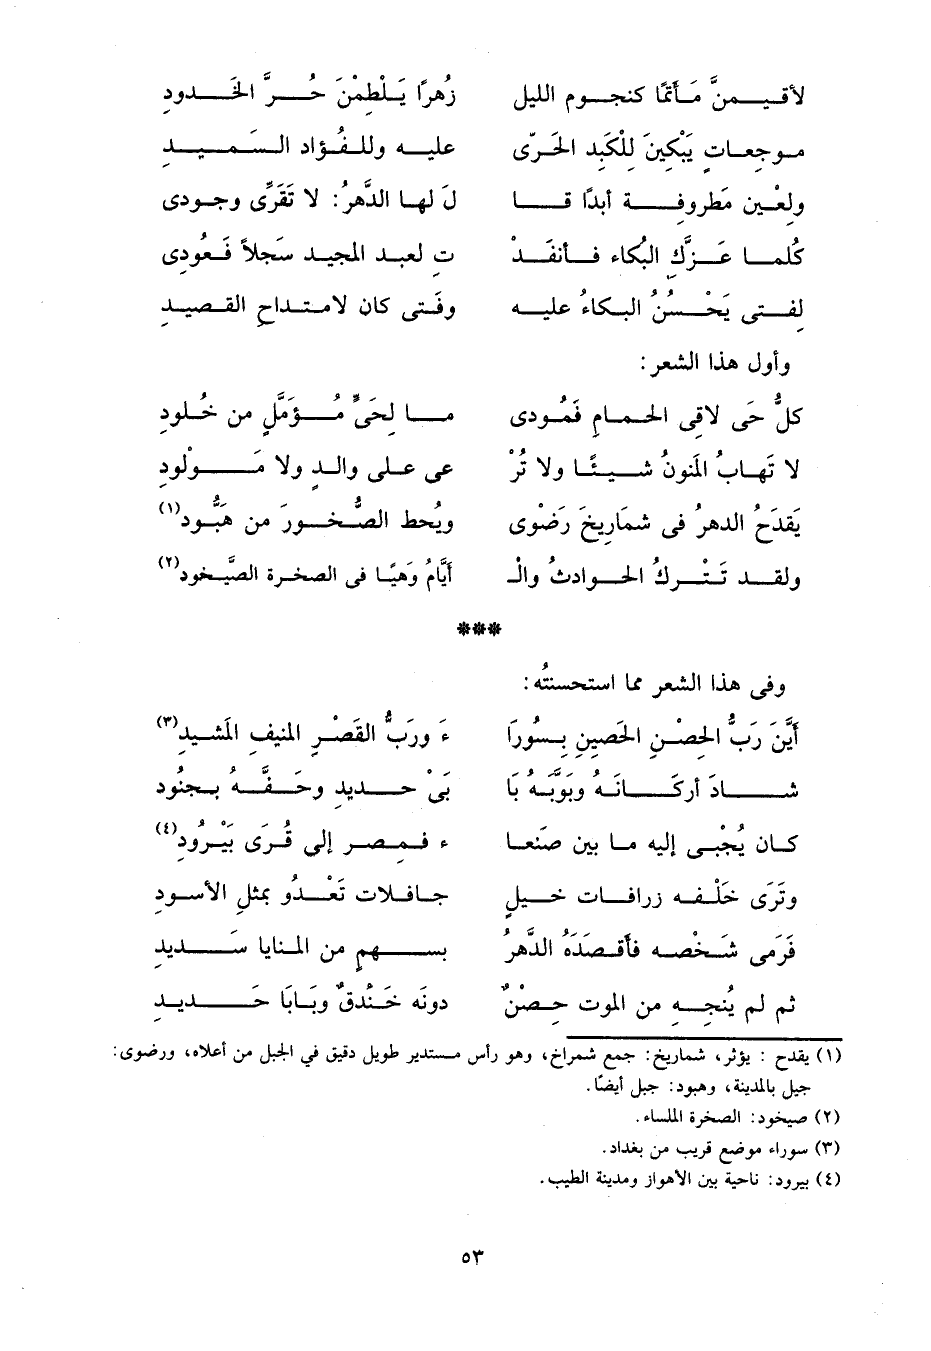 لأقيـمـنَّ مَـأتمًا كنجـوم الليل زُهرًا يَـلْطِمْنَ حُـرَّ الخَـدودِ
مـوجعـاتٍ يَبْكينَ لِلْكَبِد الحَرَّى عليـه وللـفُـؤادِ الـعَـمِيـدِ
ولعْـينٍ مَطروفـةٍ أبدًا قـا لَ لهـا الدَّهرُ: لا تَقَرِّى وجـودى
كُلمـا عَـزَّكِ البُكاء فـأنفَدْ تِ لعبـد المجيـد سَجلاً فَـعُودِى
لفـتى يَحْـسُنُ البكاءُ عليـه وفَـتى كان لامـتداحِ القـصيدِ
وأول هذا الشعر:
كلُّ حَى لاقِى الحـمـامِ فَمُودِى مـا لِحَىٍّ مُـؤَمَّلٍ من خُـلودِ
لا تَهـابُ المَنونُ شـيـئًـا ولا تُرْ عى عـلى والـدٍ ولا مَـولْودِ
يَقدَحُ الدهرُ فى شمَارِيخَ رَضْوى ويُحط الصُّخورَ من هَبُّود(١)
ولقـد تَـتْركُ الحـوادثُ والـ أيَّامُ وَهيًـا فى الصخرة الصَّيْخودِ(٢)
***
وفى هذا الشعر مما استحسنتُه:
أيَّنَ رَبُّ الحِصْنِ الحَصينِ بـسُورَا ءَ ورَبُّ القَصْرِ المنيفِ المَشيدِ(٣)
شـادَ أركَـانَـهُ وبَوَّبَـهُ بَا بَىْ حَـديدٍ وحَـفَّـهُ بـجنُود
كـان يُجْبَـى إليه مـا بين صَنَعـا ء فـمصـرٍ إلى قُـرَى بَيْـرُودِ(٤)
وتَرَى خَلْفـه زرافـات خـيلٍ جـافـلات تَعْـدُو بمثلِ الأسـودِ
فَرَمى شَـخْصـه فأقـصَدَهُ الدَّهْرُ بـسـهمٍ من المنايا سَـديدِ
ثم لم يُنجـهِ من الموتِ حِـصْنٌ دونَه خَنْدقٌ وبَابَا حَـديدِ
(١) يقدح : يؤثر، شماريخ: جمع شمراخ، وهو رأس مستدير طويل دقيق في الجبل من أعلاه، ورضوى:
جبل بالمدينة، وهبود: جبل أيضًا.
(٢) صيخود: الصخرة الملساء.
(٣) سوراء موضع قريب من بغداد.
(٤) بيرود: ناحية بين الأهواز ومدينة الطيب.
٥٣